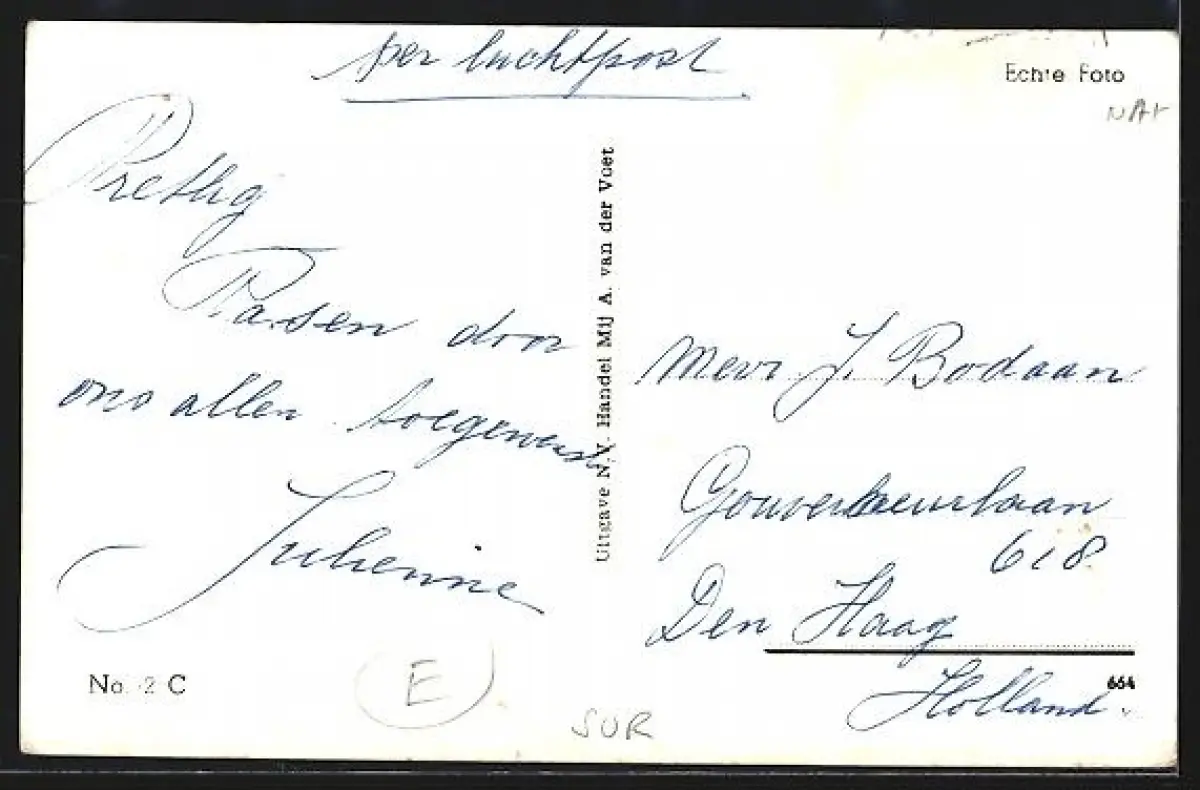 per luchtpost
Echte Foto
NAT
Prettig
Paasen door
ons allen toegewenst
Julienne
Uitgave N.V. Handel Mij A. van der Voet
Mevr J. Bodaan
Gouverneurlaan
618
Den Haag
Holland.
No. 2 C
E
SUR
664